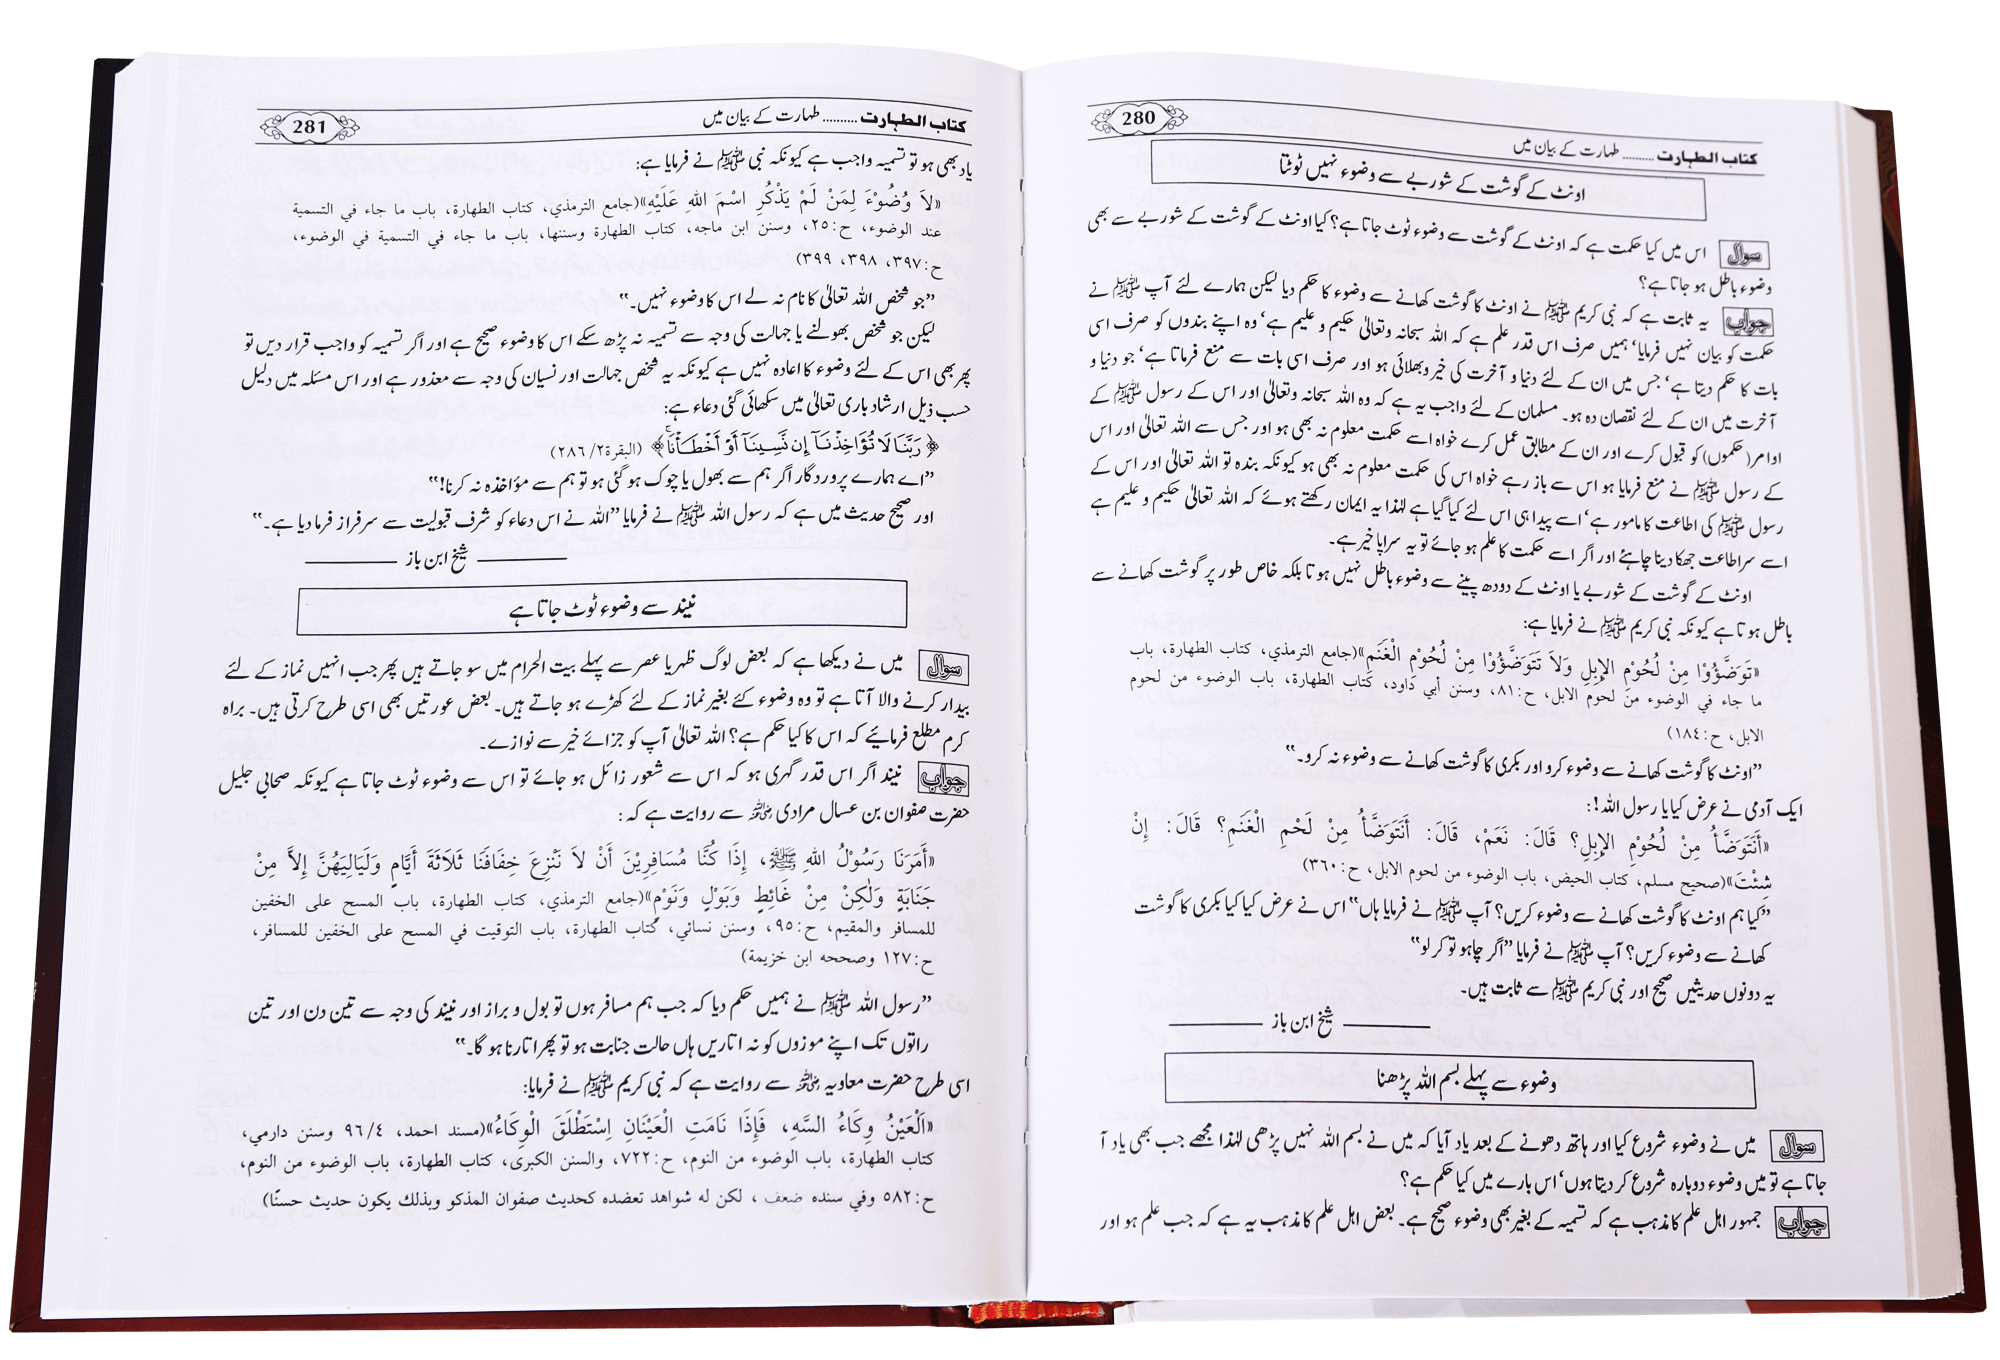 280
کتاب الطہارت ......... طہارت کے بیان میں
اونٹ کے گوشت کے شوربے سے وضوء نہیں ٹوٹتا
سوال اس میں کیا حکمت ہے کہ اونٹ کے گوشت سے وضوء ٹوٹ جاتا ہے؟ کیا اونٹ کے گوشت کے شوربے سے بھی
وضوء باطل ہو جاتا ہے؟
جواب یہ ثابت ہے کہ نبی کریم ﷺ نے اونٹ کا گوشت کھانے سے وضوء کا حکم دیا لیکن ہمارے لئے آپ ﷺ نے
حکمت کو بیان نہیں فرمایا‘ ہمیں صرف اس قدر علم ہے کہ اللہ سبحانہ وتعالیٰ حکیم و علیم ہے‘ وہ اپنے بندوں کو صرف اسی
بات کا حکم دیتا ہے‘ جس میں ان کے لئے دنیا و آخرت کی خیر وبھلائی ہو اور صرف اسی بات سے منع فرماتا ہے‘ جو دنیا و
آخرت میں ان کے لئے نقصان دہ ہو۔ مسلمان کے لئے واجب یہ ہے کہ وہ اللہ سبحانہ وتعالیٰ اور اس کے رسول ﷺ کے
اوامر (حکموں) کو قبول کرے اور ان کے مطابق عمل کرے خواہ اسے حکمت معلوم نہ بھی ہو اور جس سے اللہ تعالیٰ اور اس
کے رسول ﷺ نے منع فرمایا ہو اس سے باز رہے خواہ اس کی حکمت معلوم نہ بھی ہو کیونکہ بندہ تو اللہ تعالیٰ اور اس کے
رسول ﷺ کی اطاعت کا مامور ہے‘ اسے پیدا ہی اس لئے کیا گیا ہے لہٰذا یہ ایمان رکھتے ہوئے کہ اللہ تعالیٰ حکیم و علیم ہے
اسے سراطاعت جھکا دینا چاہئے اور اگر اسے حکمت کا علم ہو جائے تو یہ سراپا خیر ہے۔
اونٹ کے گوشت کے شوربے یا اونٹ کے دودھ پینے سے وضوء باطل نہیں ہوتا بلکہ خاص طور پر گوشت کھانے سے
باطل ہوتا ہے کیونکہ نبی کریم ﷺ نے فرمایا ہے:
«تَوَضَّؤُوْا مِنْ لُحُوْمِ الإِبِلِ وَلاَ تَتَوَضَّؤُوْا مِنْ لُحُوْمِ الْغَنَمِ»(جامع الترمذي، كتاب الطهارة، باب
ما جاء في الوضوء من لحوم الابل، ح:٨١، وسنن أبي داود، كتاب الطهارة، باب الوضوء من لحوم
الابل، ح:١٨٤)
”اونٹ کا گوشت کھانے سے وضوء کرو اور بکری کا گوشت کھانے سے وضوء نہ کرو۔“
ایک آدمی نے عرض کیا یا رسول اللہ!:
«أَنَتَوَضَّأُ مِنْ لُحُوْمِ الإِبِلِ؟ قَالَ: نَعَمْ، قَالَ: أَنَتَوَضَّأُ مِنْ لَحْمِ الْغَنَمِ؟ قَالَ: إِنْ
شِئْتَ»(صحيح مسلم، كتاب الحيض، باب الوضوء من لحوم الابل، ح:٣٦٠)
”کیا ہم اونٹ کا گوشت کھانے سے وضوء کریں؟ آپ ﷺ نے فرمایا ہاں“ اس نے عرض کیا کیا بکری کا گوشت
کھانے سے وضوء کریں؟ آپ ﷺ نے فرمایا ”اگر چاہو تو کر لو“
یہ دونوں حدیثیں صحیح اور نبی کریم ﷺ سے ثابت ہیں۔
شیخ ابن باز
وضوء سے پہلے بسم اللہ پڑھنا
سوال میں نے وضوء شروع کیا اور ہاتھ دھونے کے بعد یاد آیا کہ میں نے بسم اللہ نہیں پڑھی لہٰذا مجھے جب بھی یاد آ
جاتا ہے تو میں وضوء دوبارہ شروع کر دیتا ہوں‘ اس بارے میں کیا حکم ہے؟
جواب جمہور اہل علم کا مذہب ہے کہ تسمیہ کے بغیر بھی وضوء صحیح ہے۔ بعض اہل علم کا مذہب یہ ہے کہ جب علم ہو اور
281
کتاب الطہارت ......... طہارت کے بیان میں
یاد بھی ہو تو تسمیہ واجب ہے کیونکہ نبی ﷺ نے فرمایا ہے:
«لاَ وُضُوْءَ لِمَنْ لَمْ يَذْكُرِ اسْمَ اللهِ عَلَيْهِ»(جامع الترمذي، كتاب الطهارة، باب ما جاء في التسمية
عند الوضوء، ح:٢٥، وسنن ابن ماجه، كتاب الطهارة وسننها، باب ما جاء في التسمية في الوضوء،
ح:٣٩٧، ٣٩٨، ٣٩٩)
”جو شخص اللہ تعالیٰ کا نام نہ لے اس کا وضوء نہیں۔“
لیکن جو شخص بھولنے یا جہالت کی وجہ سے تسمیہ نہ پڑھ سکے اس کا وضوء صحیح ہے اور اگر تسمیہ کو واجب قرار دیں تو
پھر بھی اس کے لئے وضوء کا اعادہ نہیں ہے کیونکہ یہ شخص جہالت اور نسیان کی وجہ سے معذور ہے اور اس مسئلہ میں دلیل
حسب ذیل ارشاد باری تعالیٰ میں سکھائی گئی دعاء ہے:
﴿رَبَّنَا لَا تُؤَاخِذْنَآ إِن نَّسِينَآ أَوْ أَخْطَأْنَا﴾ (البقرة٢/٢٨٦)
”اے ہمارے پروردگار اگر ہم سے بھول یا چوک ہو گئی ہو تو ہم سے مؤاخذہ نہ کرنا!“
اور صحیح حدیث میں ہے کہ رسول اللہ ﷺ نے فرمایا ”اللہ نے اس دعاء کو شرف قبولیت سے سرفراز فرما دیا ہے۔“
شیخ ابن باز
نیند سے وضوء ٹوٹ جاتا ہے
سوال میں نے دیکھا ہے کہ بعض لوگ ظہر یا عصر سے پہلے بیت الحرام میں سو جاتے ہیں پھر جب انہیں نماز کے لئے
بیدار کرنے والا آتا ہے تو وہ وضوء کئے بغیر نماز کے لئے کھڑے ہو جاتے ہیں۔ بعض عورتیں بھی اسی طرح کرتی ہیں۔ براہ
کرم مطلع فرمائیے کہ اس کا کیا حکم ہے؟ اللہ تعالیٰ آپ کو جزائے خیر سے نوازے۔
جواب نیند اگر اس قدر گہری ہو کہ اس سے شعور زائل ہو جائے تو اس سے وضوء ٹوٹ جاتا ہے کیونکہ صحابی جلیل
حضرت صفوان بن عسال مرادی رضی اللہ عنہ سے روایت ہے کہ:
«أَمَرَنَا رَسُوْلُ اللهِ ﷺ، إِذَا كُنَّا مُسَافِرِيْنَ أَنْ لاَ نَنْزِعَ خِفَافَنَا ثَلاَثَةَ أَيَّامٍ وَلَيَالِيَهُنَّ إِلاَّ مِنْ
جَنَابَةٍ وَلٰكِنْ مِنْ غَائِطٍ وَبَوْلٍ وَنَوْمٍ»(جامع الترمذي، كتاب الطهارة، باب المسح على الخفين
للمسافر والمقيم، ح:٩٥، وسنن نسائي، كتاب الطهارة، باب التوقيت في المسح على الخفين للمسافر،
ح:١٢٧ وصححه ابن خزيمة)
”رسول اللہ ﷺ نے ہمیں حکم دیا کہ جب ہم مسافر ہوں تو بول و براز اور نیند کی وجہ سے تین دن اور تین
راتوں تک اپنے موزوں کو نہ اتاریں ہاں حالت جنابت ہو تو پھر اتارنا ہو گا۔“
اسی طرح حضرت معاویہ رضی اللہ عنہ سے روایت ہے کہ نبی کریم ﷺ نے فرمایا:
«اَلْعَيْنُ وِكَاءُ السَّهِ، فَإِذَا نَامَتِ الْعَيْنَانِ اِسْتَطْلَقَ الْوِكَاءُ»(مسند احمد، ٤/٩٦ وسنن دارمي،
كتاب الطهارة، باب الوضوء من النوم، ح:٧٢٢، والسنن الكبرى، كتاب الطهارة، باب الوضوء من النوم،
ح:٥٨٢ وفي سنده ضعف ، لكن له شواهد تعضده كحديث صفوان المذكو وبذلك يكون حديث حسنًا)